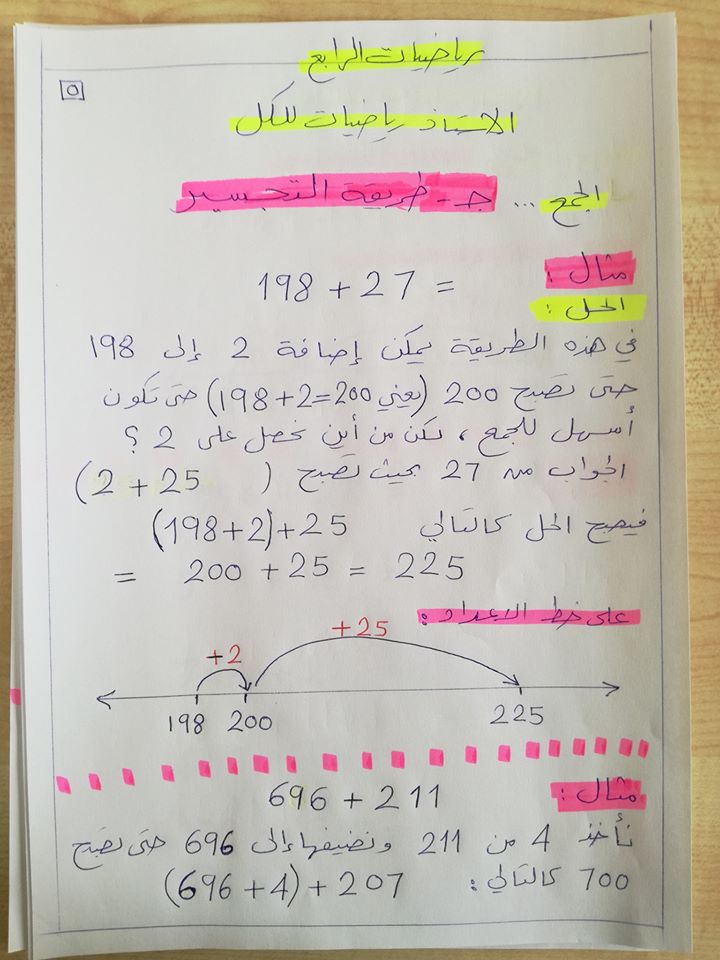 رياضيات الرابع
٥
الاستاذ رياضيات للكل
الجمع ... جـ - طريقة التجسير
مثال :
198 + 27 =
الحل :
في هذه الطريقة يمكن إضافة 2 إلى 198
حتى تصبح 200 (يعني 200=2+198) حتى تكون
أسهل للجمع ، لكن من أين نحصل على 2 ؟
الجواب من 27 بحيث تصبح (2 + 25)
فيصبح الحل كالتالي (198+2)+25
= 200 + 25 = 225
على خط الاعداد :
+2 +25
198 200 225
مثال :
696 + 211
نأخذ 4 من 211 ونضيفها إلى 696 حتى تصبح
700 كالتالي : (696 + 4) + 207